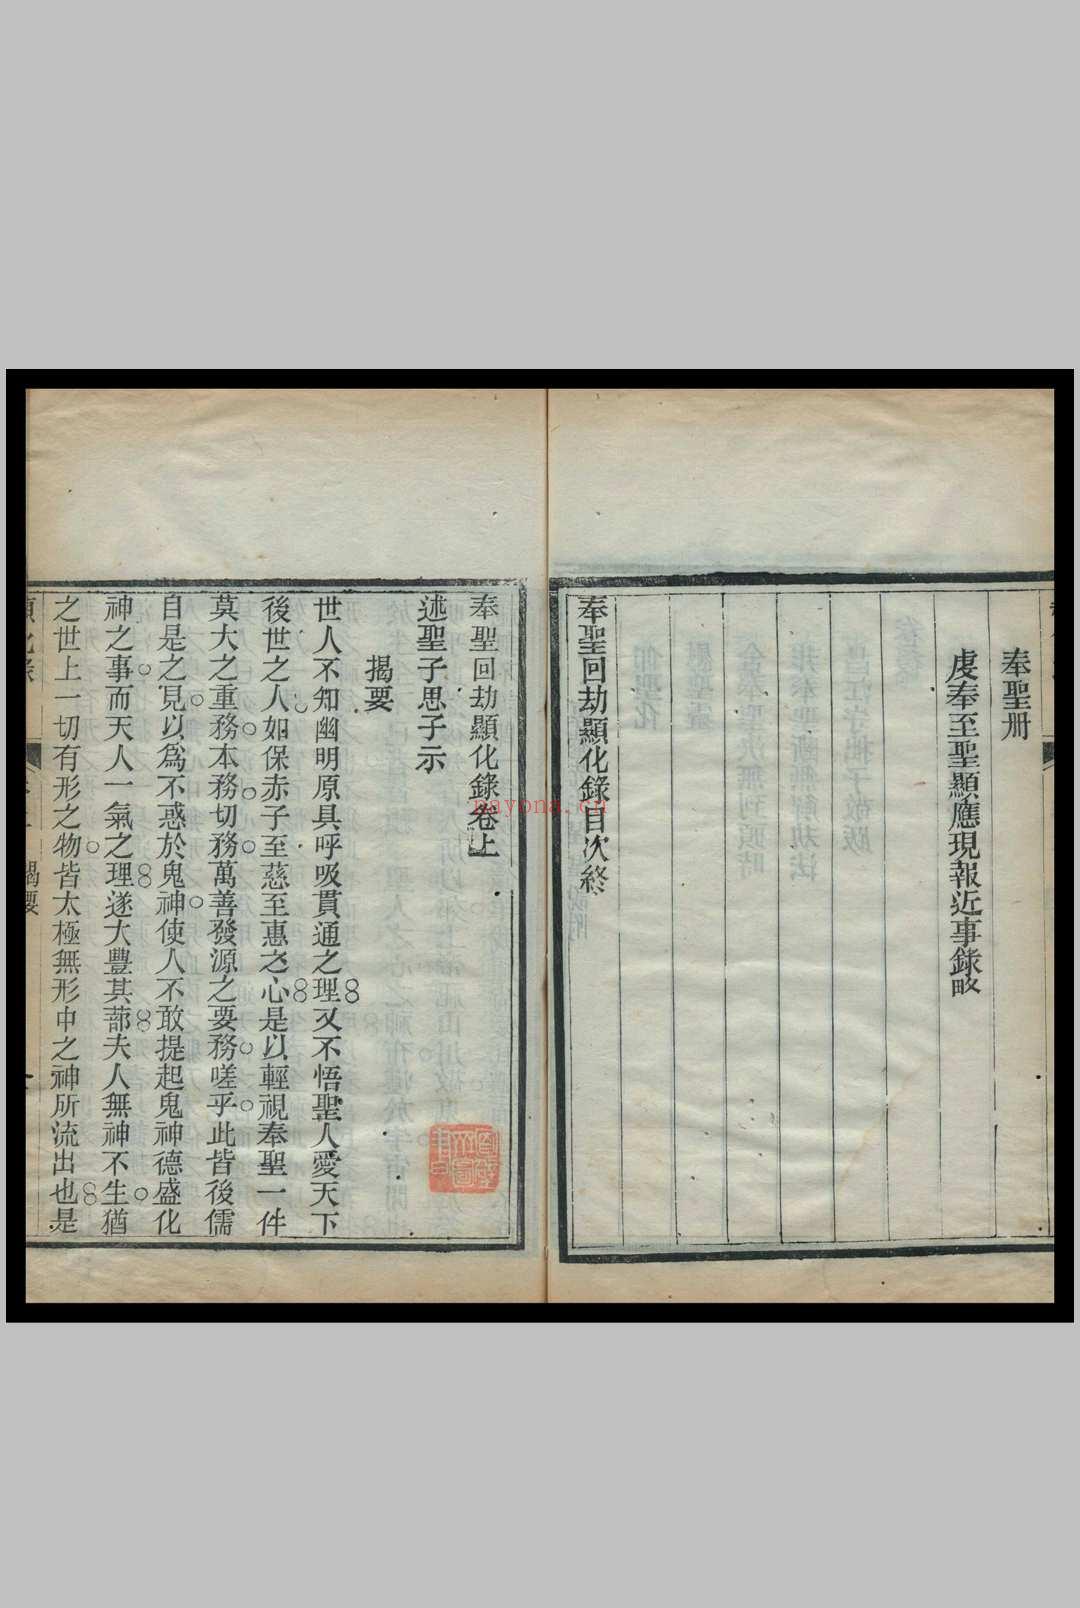 奉聖册
虔奉至聖顯應現報近事錄畧
奉聖回劫顯化錄目次終
奉聖回劫顯化錄卷上
述聖子思子示
揭要
世人不知幽明原具呼吸貫通之理又不悟聖人愛天下
後世之人如保赤子至慈至惠之心是以輕視奉聖一件
莫大之重務本務切務萬善發源之要務嗟乎此皆後儒
自是之見以爲不惑於鬼神使人不敢提起鬼神德盛化
神之事而天人一氣之理遂大豐其蔀夫人無神不生猶
之世上一切有形之物皆太極無形中之神所流出也是
揭要
nayona.cn